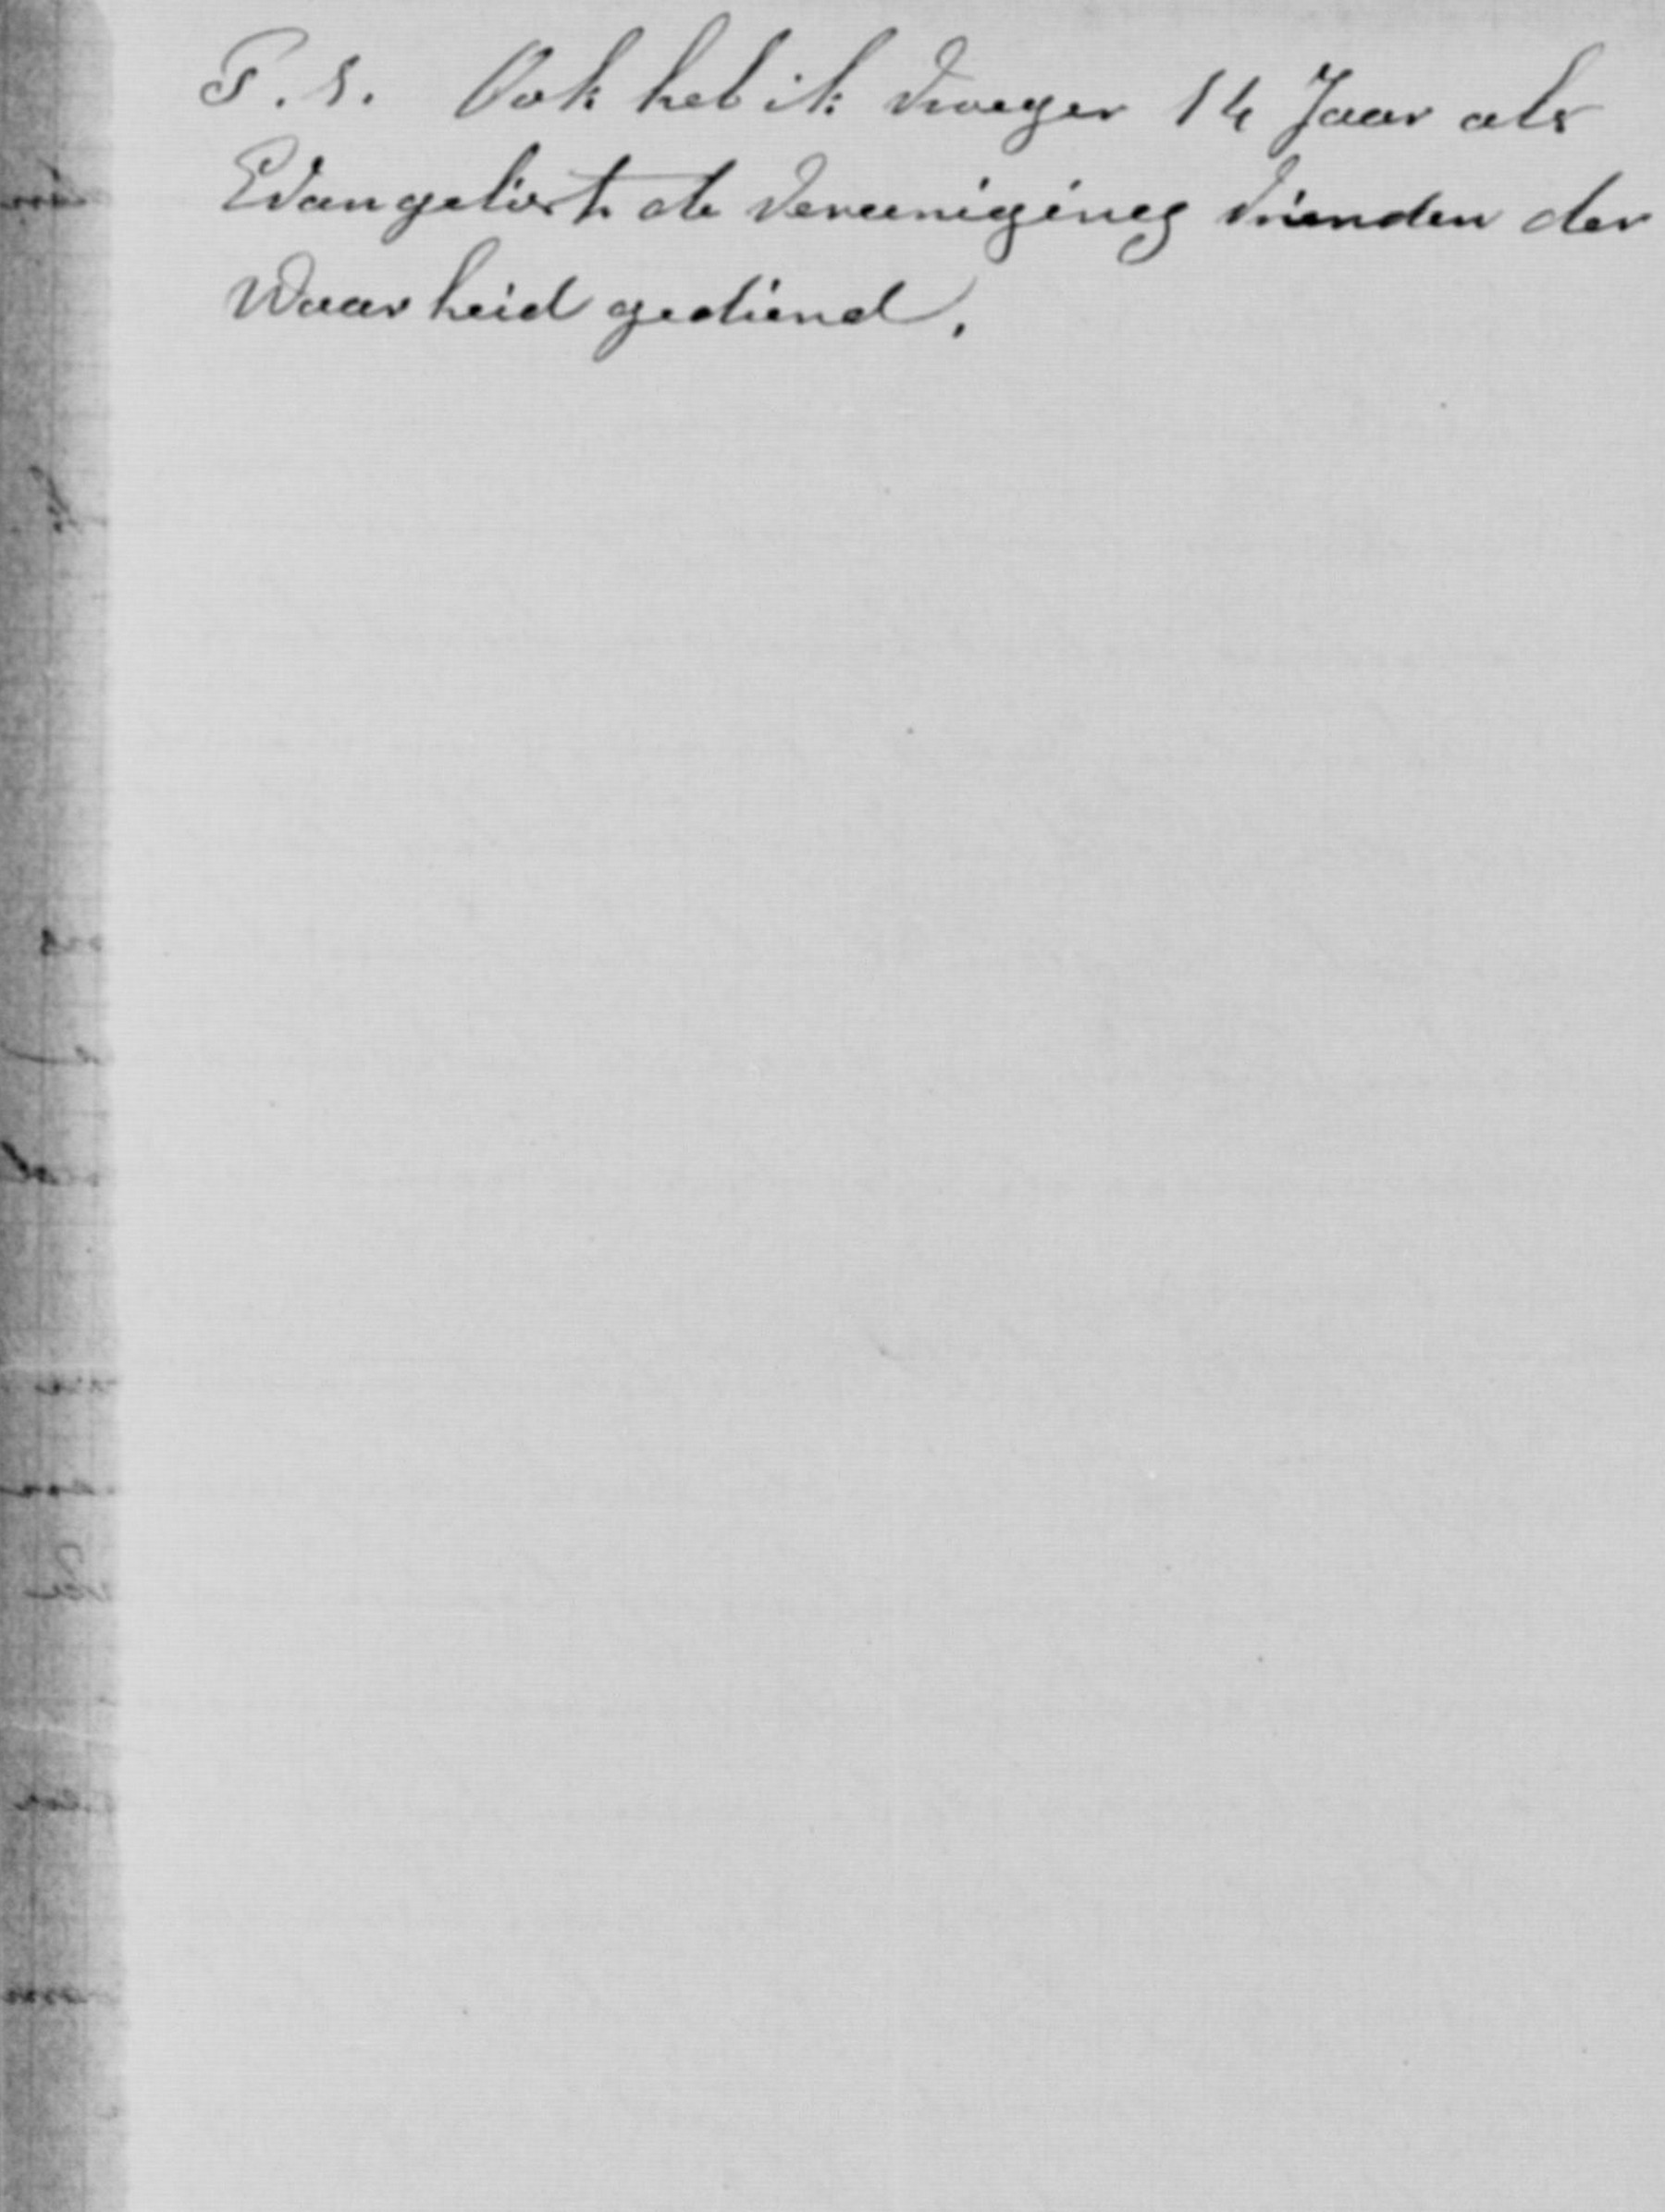 P.S. Ook heb ik vroeger 14 Jaar als
Evangelist de vereeniging vrienden der
Waarheid gediend.